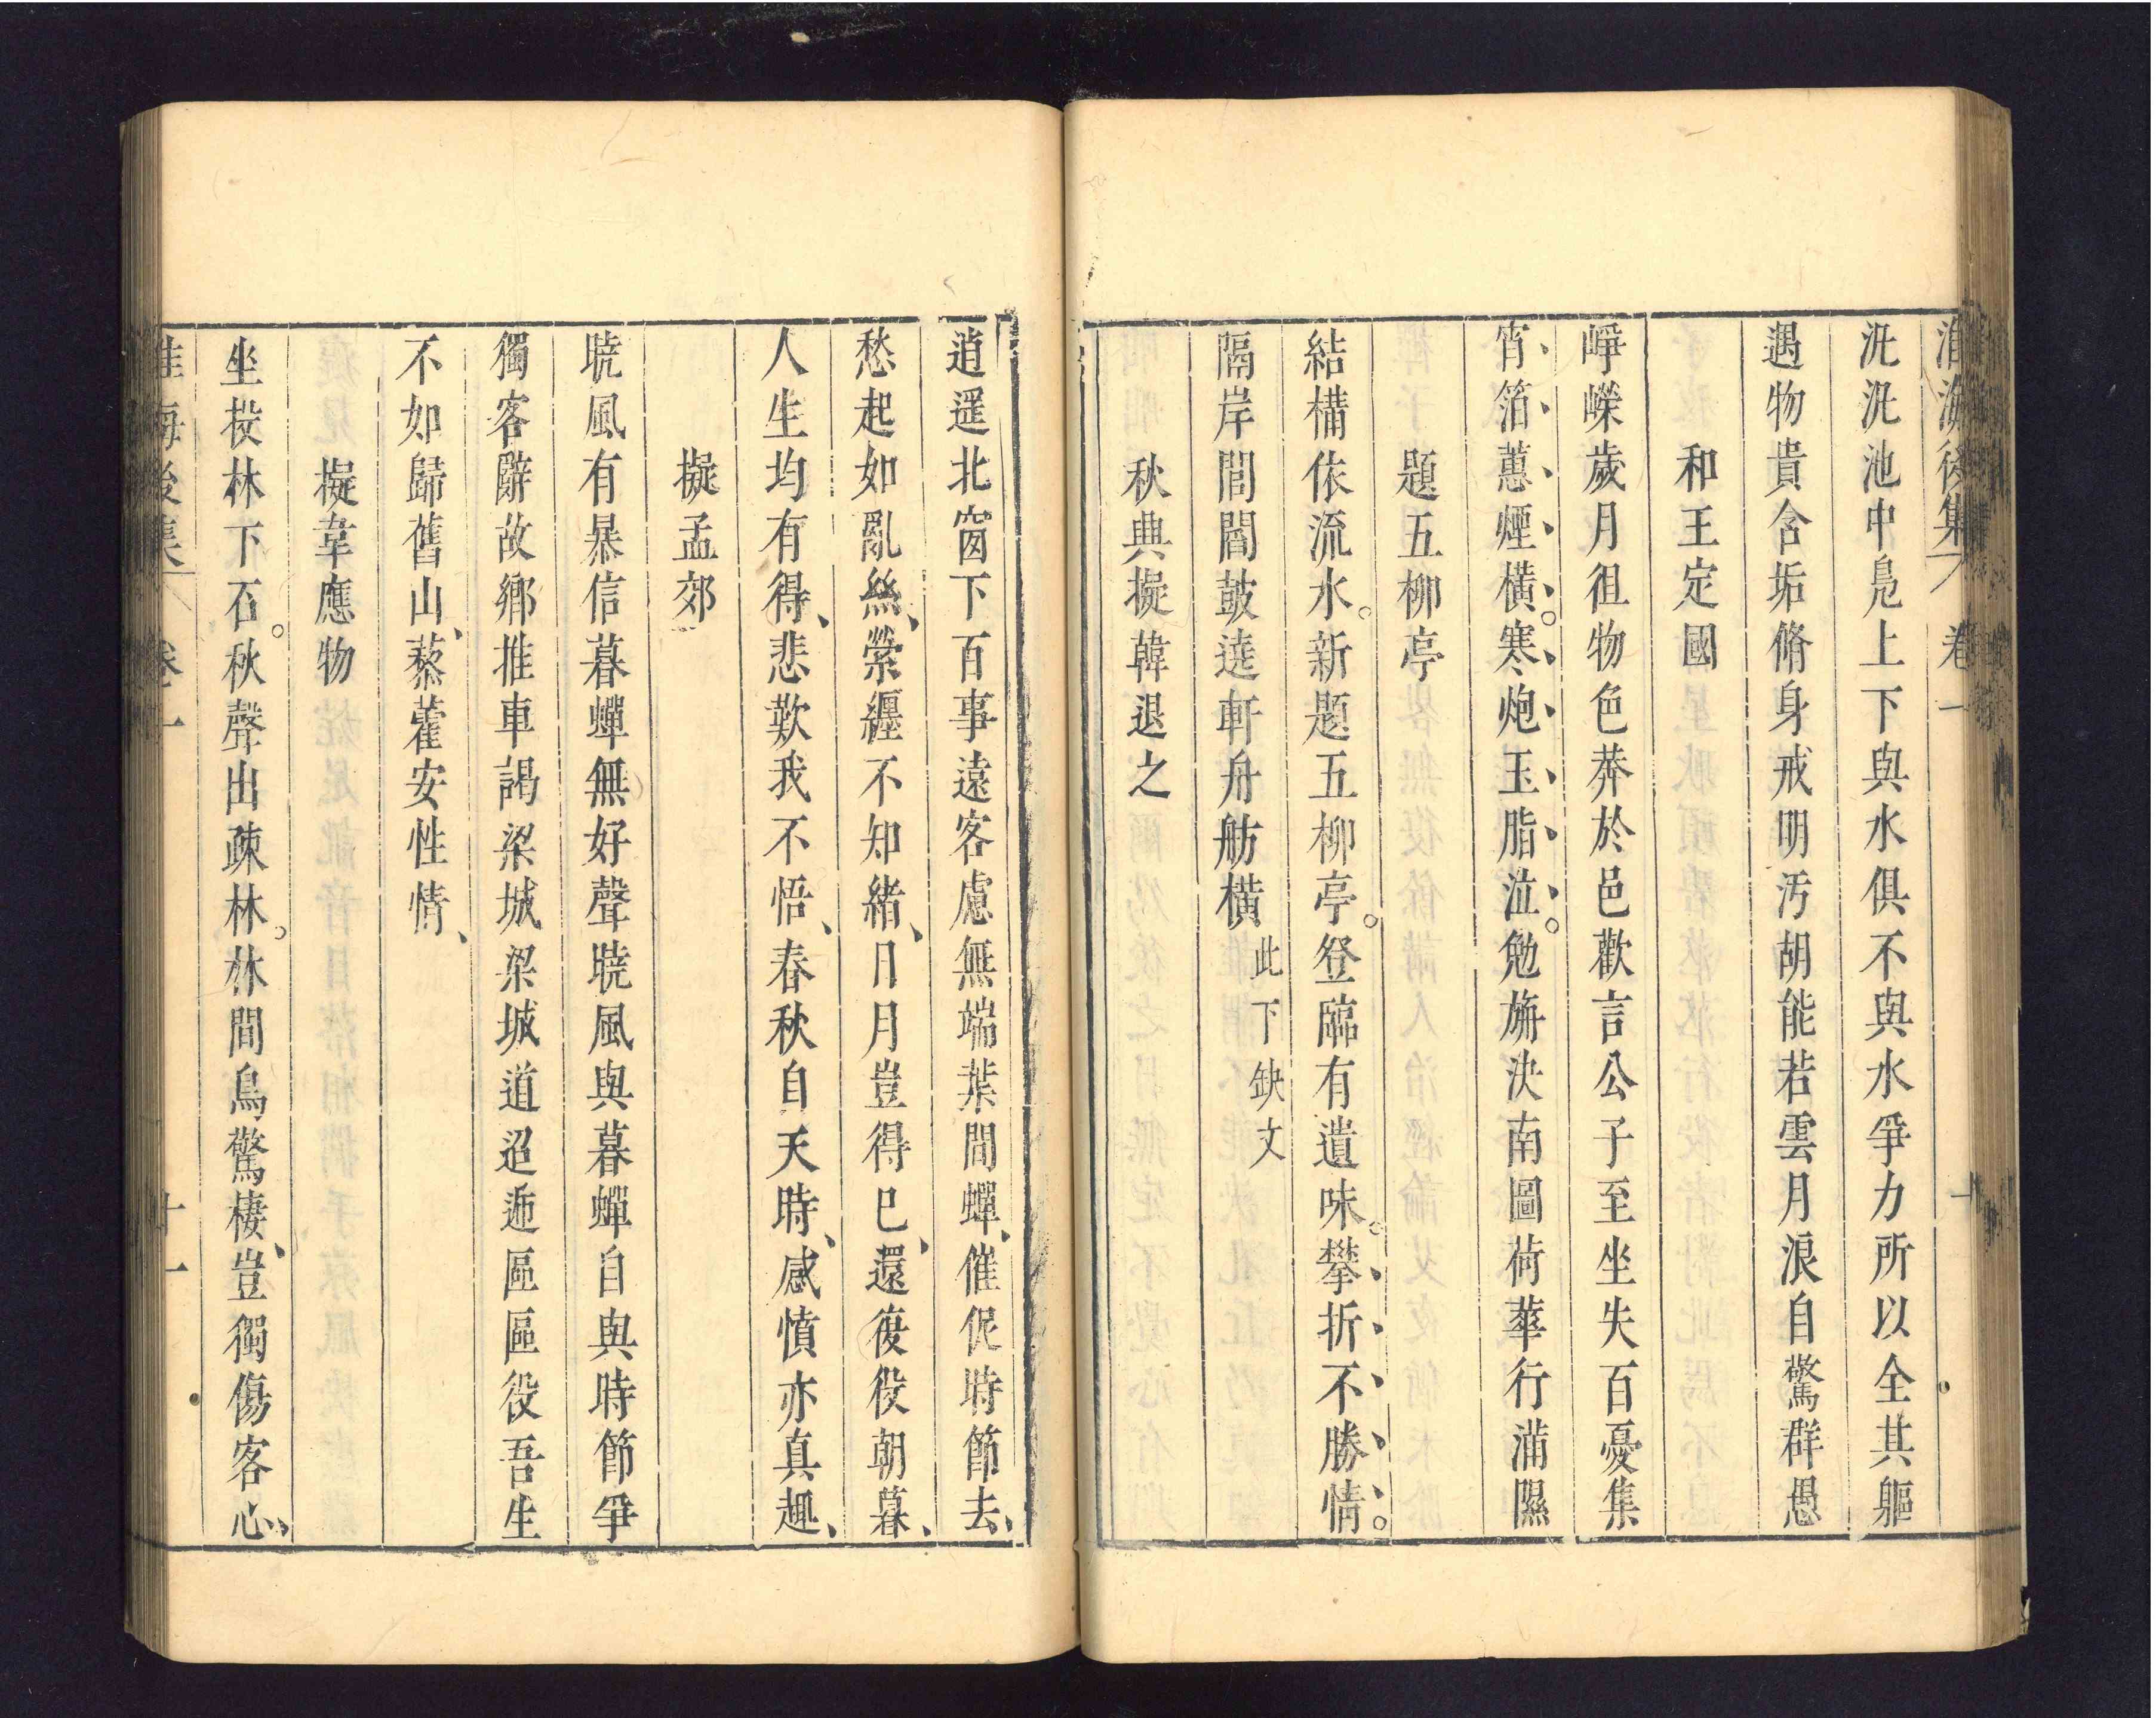 淮海後集 卷一
汎汎池中鳧上下與水俱不與水爭力所以全其軀
遇物貴含垢脩身戒明汚胡能若雲月浪自驚群愚
和王定國
崢嶸歲月徂物色莽於邑歡言公子至坐失百憂集
宵箔蕙煙橫。寒炮玉脂泣。勉旃決南圖荷蕐行滿隰
題五柳亭
結構依流水。新題五柳亭。登臨有遺味。攀折不勝情。
隔岸閭閻鼓遶軒舟舫橫 此下缺文
秋興擬韓退之
逍遥北窗下百事遠客慮無端葉間蟬、催促時節去、
愁起如亂絲、縈纒不知緒、日月豈得已、還復役朝暮、
人生均有得、悲歎我不悟、春秋自天時、感憤亦真趣、
擬孟郊
曉風有暴信暮蟬無好聲曉風與暮蟬自與時節爭
獨客辭故鄉推車謁梁城梁城道迢遞區區役吾生
不如歸舊山、藜藿安性情、
擬韋應物
坐投林下石。秋聲出疎林。林間鳥驚棲、豈獨傷客心、
淮海後集 卷一 十一